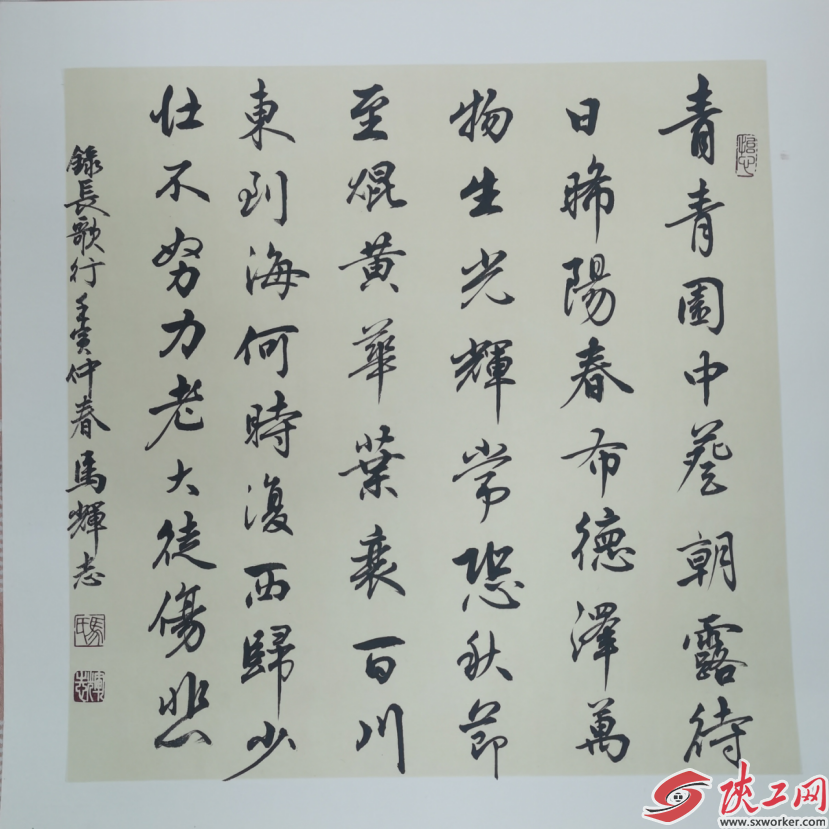 青青園中葵朝露待
日晞陽春布德澤萬
物生光輝常恐秋節
至焜黄華葉衰百川
東到海何時復西歸少
壯不努力老大徒傷悲
錄長歌行壬寅仲春馬輝志
馬氏
輝志
陕工网
www.sxworker.com